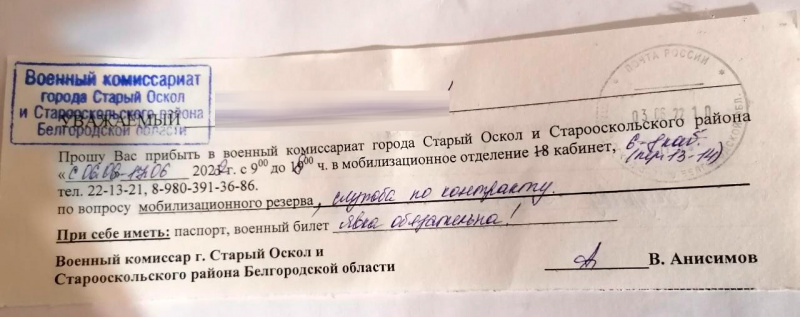 Военный комиссариат
города Старый Оскол
и Старооскольского района
Белгородской области
ПОЧТА РОССИИ
03 06 22 10
УВАЖАЕМЫЙ
Прошу Вас прибыть в военный комиссариат города Старый Оскол и Старооскольского района
« с 06.06-17.06 2022 г. с 9 00 до 16 00 ч. в мобилизационное отделение 18 кабинет, 6-й каб. (пер. 13-14)
тел. 22-13-21, 8-980-391-36-86.
по вопросу мобилизационного резерва, служба по контракту.
При себе иметь: паспорт, военный билет явка обязательна!
Военный комиссар г. Старый Оскол и
Старооскольского района Белгородской области В. Анисимов